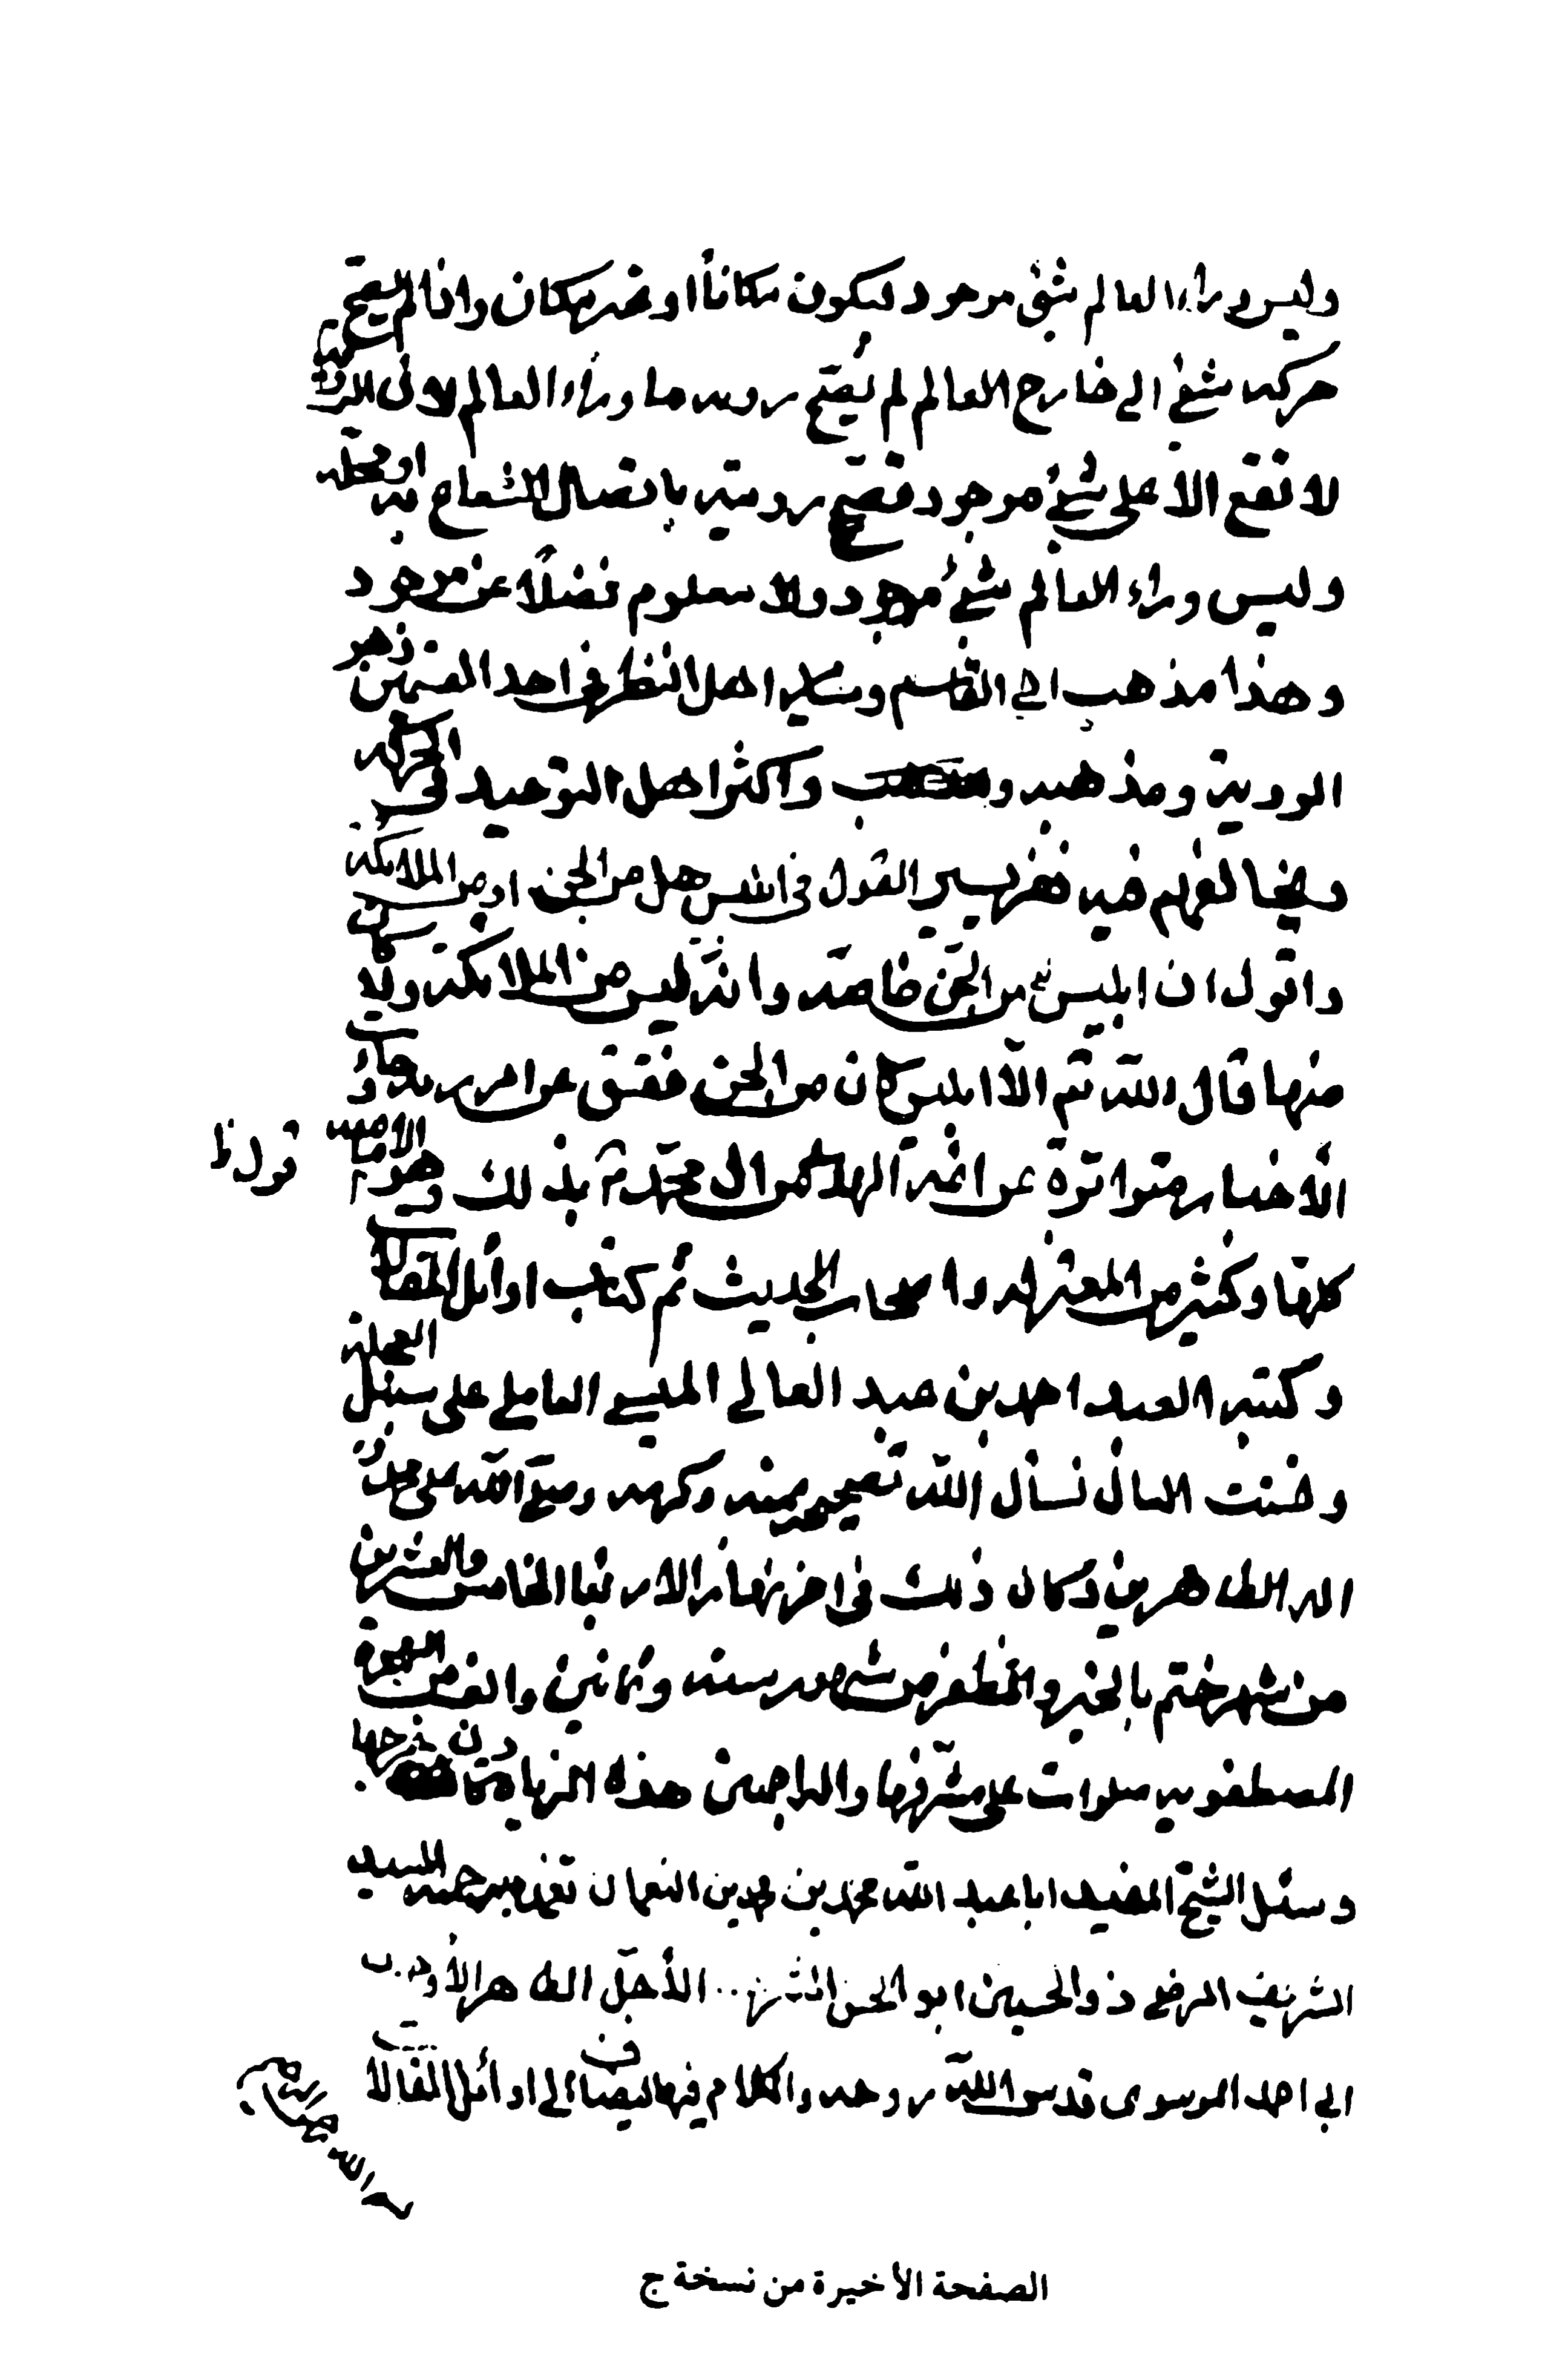 وليس وراء العالم شئ موجود فيكون مكاناً او غير مكان واذا لم يصح
حركة شئ الى خارج العالم لم يصح رؤية ما وراء العالم لان الرؤية
لا تقع الا على شئ موجود تصح رؤيته باتصال الشعاع به او بمحله
وليس وراء العالم شئ موجود ولا معلوم فضلاً عن موجود
وهذا مذهب ابي القاسم وساير اهل النظر في احد
الروية ومذهبه و واكثر اهل التوحيد في الحركة
ويخالفهم فيه نفر يسير القول في ابليس هل من الجن او من الملائكة
واقول ان ابليس من الجن خاصة وانه ليس من الملائكة ولا كان
منها قال الله تع الا ابليس كان من الجن ففسق عن امر ربه وجاءت
الأخبار متواترة عن ائمة الهدى من ال محمد ع بذلك وهو مذهب الامامية
قول ظ
كلها وكثير من المعتزلة واصحاب الحديث تم كتاب اوائل المقالات
وكتبه العبد احمد بن عبد العالي الميسي العاملي على سبيل العجلة
وضنت البال نسأل الله تصحيحه بمنه وكرمه وصلى الله على محمد
اله الطاهرين وكان ذلك في اخر نهار الاربعا الخامس والعشرين
من شهر ختم بالخير والظفر من شهور سنة وثمانين والف من الهجرة
المصطفوية صلوات على مشرفها والراجعين هذه
وسئل الشيخ المفيد ابا عبد الله محمد بن محمد بن النعمان تغمده برحمته السيد
الشريف الرضي ذو الحسبين ابو الحسن الأجل الطاهر الأوحد
ابي احمد الموسوى قدس الله روحه والكلام فيها يضاف الى اوائل المقالات
الصفحة الأخيرة من نسخة ج